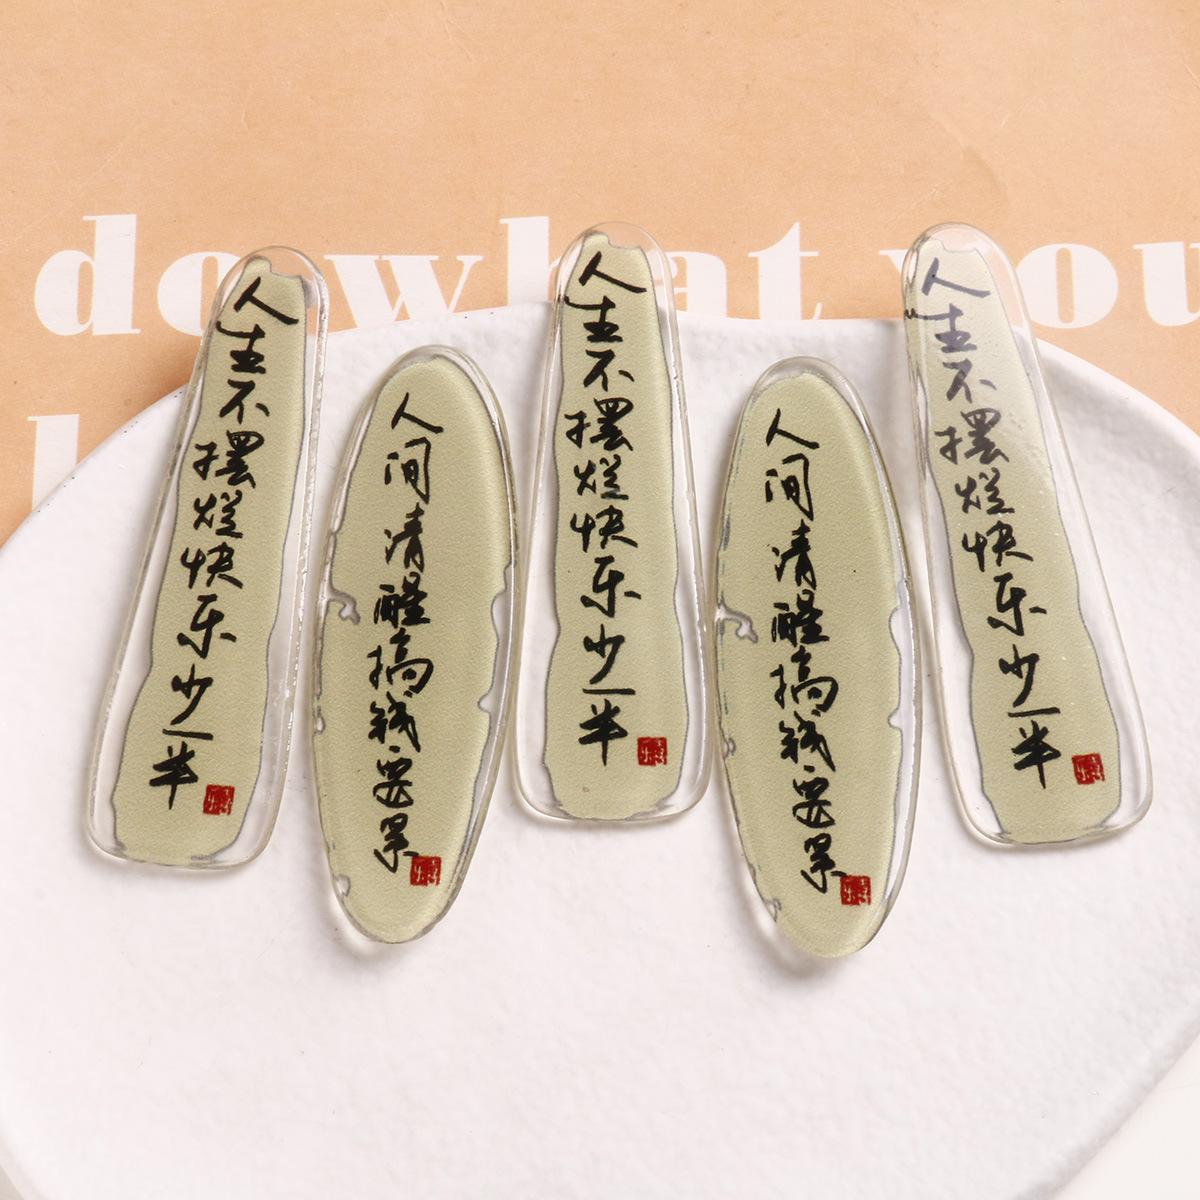 do what you
人生不摆烂快乐少一半
人间清醒搞钱要紧
人生不摆烂快乐少一半
人间清醒搞钱要紧
人生不摆烂快乐少一半